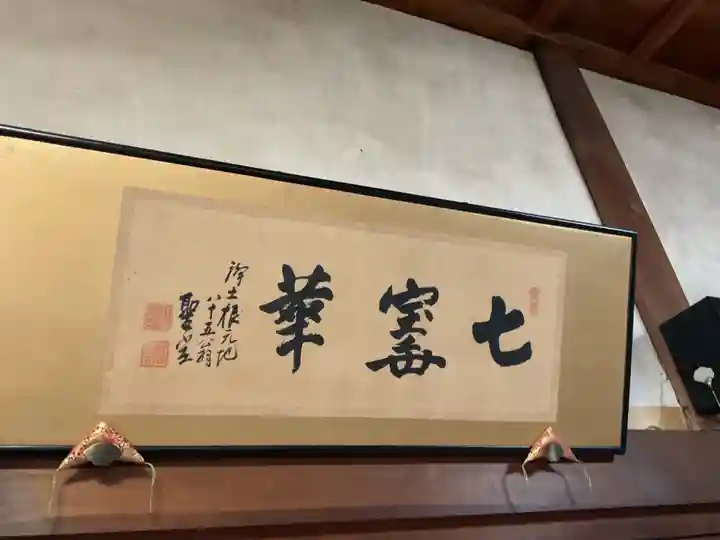 七寳華
浄土根元地
八十五翁
聖